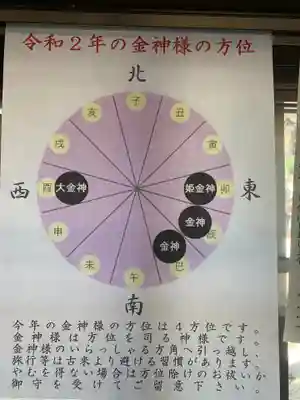 令和２年の金神様の方位
北
子
亥
丑
戌
寅
西
酉
大金神
姫金神
卯
東
金神
申
辰
金神
未
巳
午
南
今年の金神様の方位は４方位です。
金神様は方位を司る神様です。
金神様のいらっしゃる方角へ引っ越し、
旅行等は古来より避ける習慣があります。
やむを得ない場合は方位除けのお祓いか
御守を受けてご留意下さい。